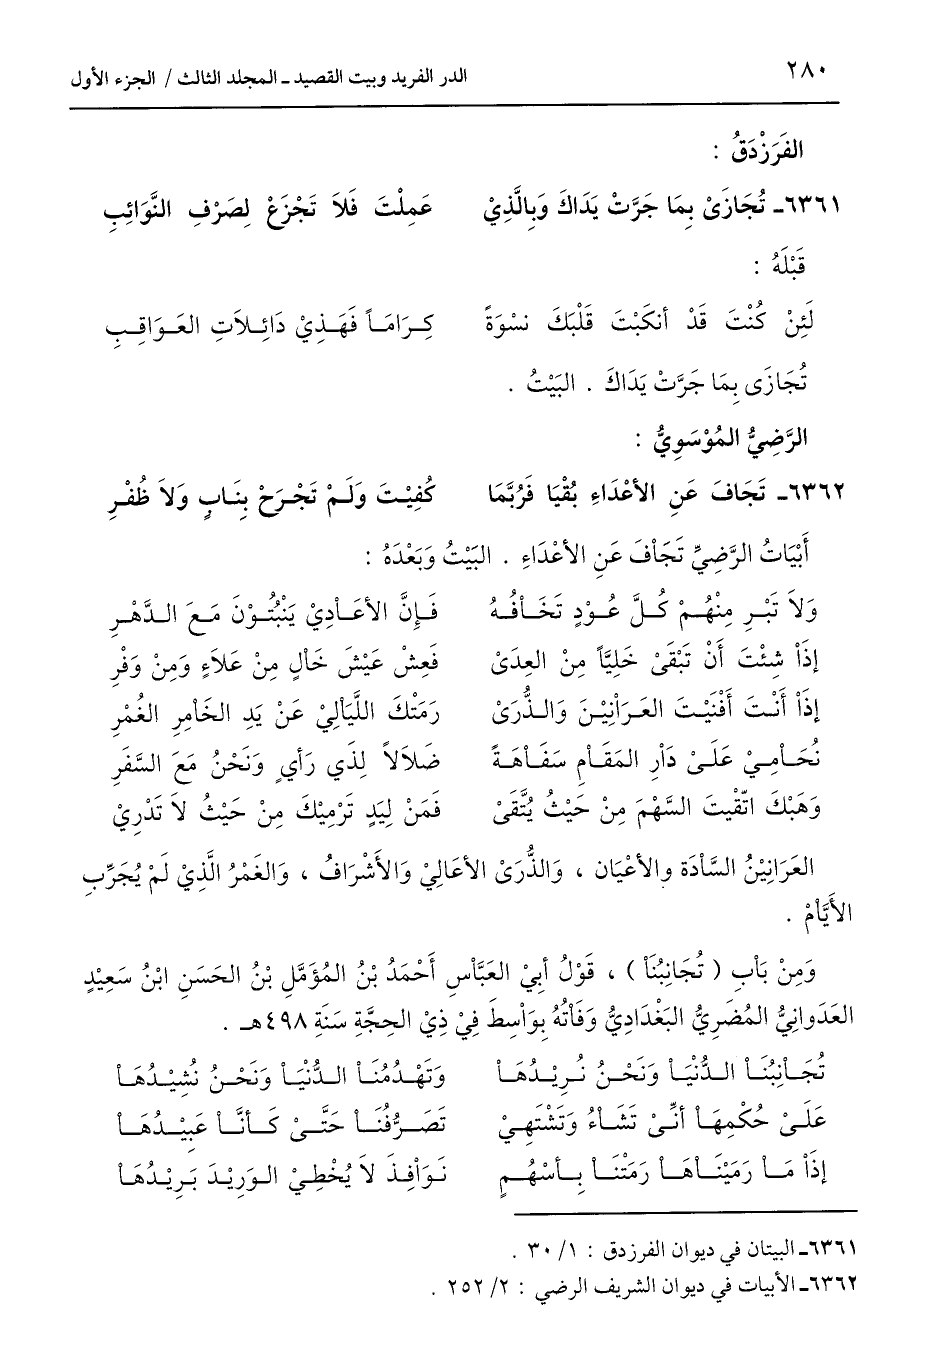 ٢٨٠ الدر الفريد وبيت القصيد ـ المجلد الثالث / الجزء الأول
الفَرَزْدَقُ :
٦٣٦١ـ تُجَازَىْ بِمَا جَرَّتْ يَدَاكَ وَبِالَّذِيْ عَمِلْتَ فَلاَ تَجْزَعْ لِصَرْفِ النَّوَائِبِ
قَبْلَهُ :
لَئِنْ كُنْتَ قَدْ أنكَبْتَ قَلْبَكَ نسْوَةً كِرَامَاً فَهَذِيْ دَائِلاَتِ العَوَاقِبِ
تُجَازَى بِمَا جَرَّتْ يَدَاكَ . البَيْتُ .
الرَّضِيُّ المُوْسَوِيُّ :
٦٣٦٢ـ تَجَافَ عَنِ الأعْدَاءِ بُقْيَا فَرُبَّمَا كُفِيْتَ وَلَمْ تَجْرَحْ بِنَابٍ وَلاَ ظُفْرِ
أَبْيَاتُ الرَّضِيِّ تَجَاْفَ عَنِ الأعْدَاءِ . البَيْتُ وَبَعْدَهُ :
وَلاَ تَبْرِ مِنْهُمْ كُلَّ عُوْدٍ تَخَافُهُ فَإِنَّ الأعَادِيْ يَنْبُتُوْنَ مَعَ الدَّهْرِ
إِذَاْ شِئْتَ أَنْ تَبْقَىْ خَلِيَّاً مِنَ العِدَىْ فَعِشْ عَيْشَ خَالٍ مِنْ عَلاَءٍ وَمِنْ وَفْرِ
إِذَاْ أَنْتَ أَفْنَيْتَ العَرَاْنِيْنَ وَالذُّرَىْ رَمَتْكَ اللَّيَالِيْ عَنْ يَدِ الخَامِرِ الغُمْرِ
نُحَاْمِيْ عَلَىْ دَاْرِ المَقَاْمِ سَفَاْهَةً ضَلاَلاً لِذِي رَأيٍ وَنَحْنُ مَعَ السَّفَرِ
وَهَبْكَ اتّقْيتَ السَّهْمَ مِنْ حَيْثُ يُتَّقَىْ فَمَنْ لِيَدٍ تَرْمِيْكَ مِنْ حَيْثُ لاَ تَدْرِيْ
العَرَانِيْنُ السَّاْدَة والأعْيَان ، وَالذُّرَىْ الأعَالِيْ وَالأَشْرَافُ ، وَالغَمْرُ الَّذِيْ لَمْ يُجَرِّبِ
الأَيَّاْمْ .
وَمِنْ بَاْبِ ( تُجَانِبُنَاْ ) ، قَوْلُ أَبِيْ العَبَّاْسِ أَحْمَدُ بْنُ المُؤَمَّلِ بْنُ الحَسَنِ ابْنُ سَعِيْدٍ
العَدَوانِيُّ المُضَرِيُّ البَغْدَادِيُّ وَفَاْتُهُ بِوَاْسِطَ فِيْ ذِيْ الحِجَّةِ سَنَةِ ٤٩٨هـ .
تُجَاْنِبُنَا الدُّنْيَا وَنَحْنُ نُرِيْدُهَا وَتَهْدُمُنَا الدُّنْيَا وَنَحْنُ نُشِيْدُهَا
عَلَىْ حُكْمِهَاْ أنّىْ تَشَاءُ وَتَشْتَهِيْ تَصَرُّفُنَاْ حَتَّىْ كَأنَّاْ عَبِيْدُهَاْ
إِذَاْ مَاْ رَمَيْنَاهَاْ رَمَتْنَاْ بِأَسْهُمٍ نَوَاْفِذَ لاَ يُخْطِيْ الوَرِيْدَ بَرِيْدُهَاْ
٦٣٦١ـ البيتان في ديوان الفرزدق : ١/ ٣٠ .
٦٣٦٢ـ الأبيات في ديوان الشريف الرضي : ٢/ ٢٥٢ .